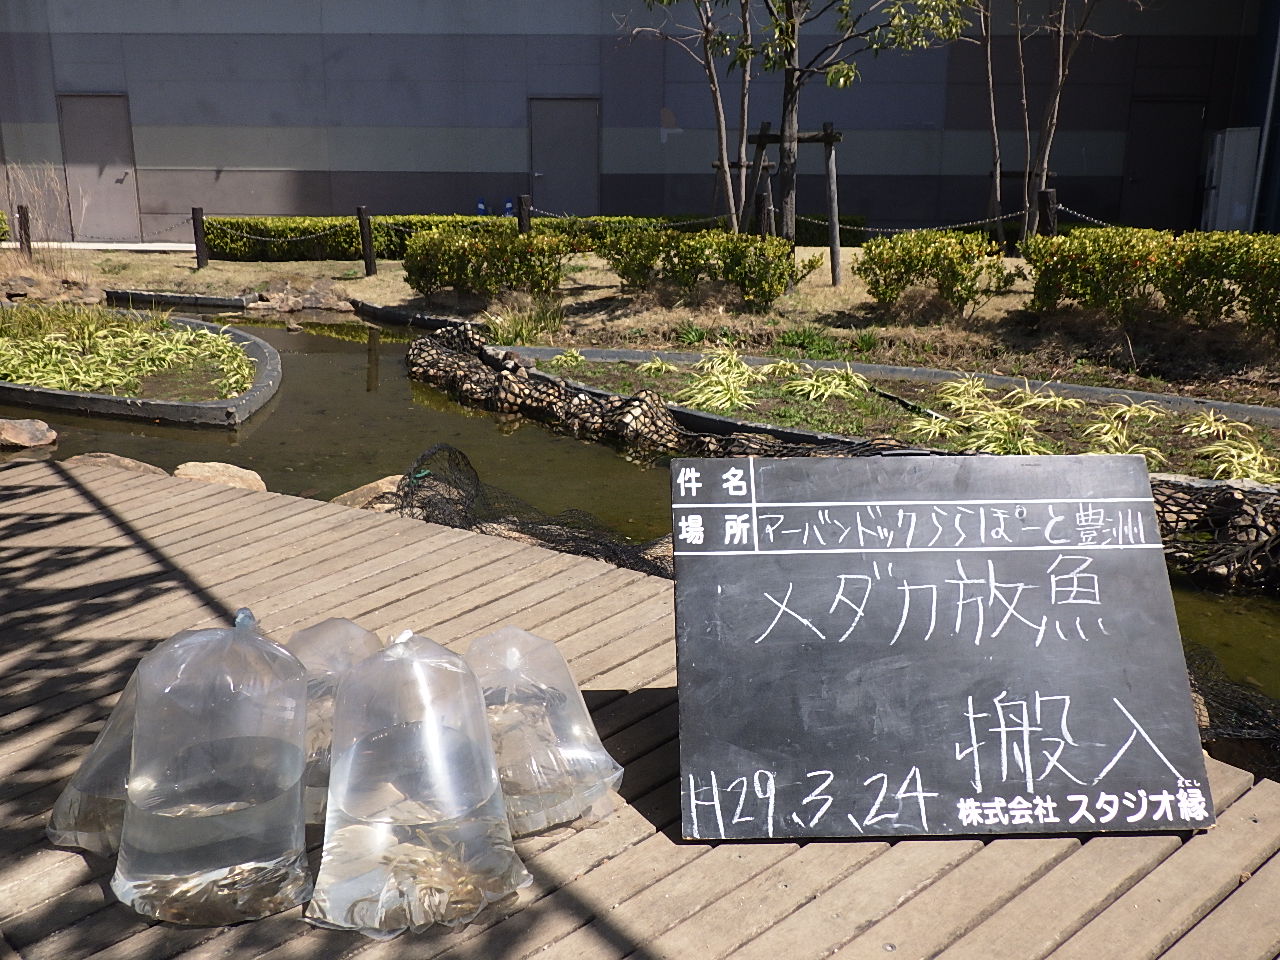 件名
場所 アーバンドックららぽーと豊洲
メダカ放魚
搬入
H29.3.24
株式会社 スタジオ縁